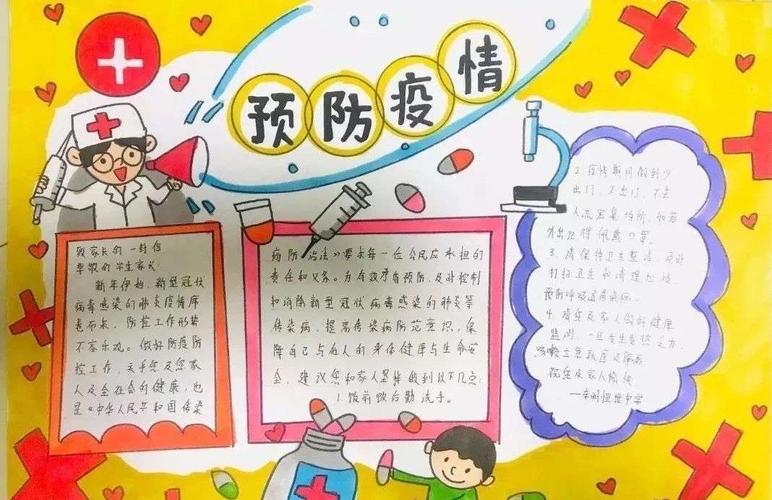 预防疫情
致家长的一封信
尊敬的学生家长
新年伊始，新型冠状
病毒感染的肺炎疫情席
卷而来，防控工作形势
不容乐观。做好防疫防
控工作，关乎您及您家
人及全社会的健康，也
是《中华人民共和国传染
病防治法》要求每一位公民应承担的
责任和义务。为有效预防，及时控制
和消除新型冠状病毒感染的肺炎等
传染病，提高传染病防范意识，保
障自己与他人的身体健康与生命安
全，建议您和家人坚持做到以下几点：
1.饭前饭后勤洗手。
2.疫情期间做到少
出门，不出门，不去
人流密集场所，如若
外出
3.请保持卫生整洁，
打扫卫生和清理垃圾，
预防呼吸道传染病。
4.请您及家人做好健康
监测，一旦发生发热乏力
咳嗽
祝您及家人愉快